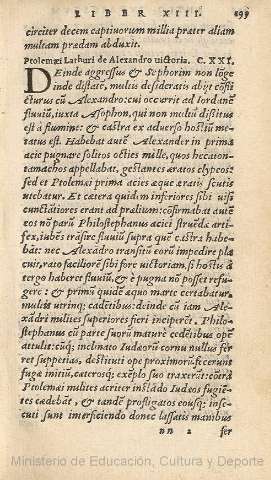 LIBER XIII. 899
circiter decem captiuorum millia præter aliam
multam prædam abduxit.
Ptolemæi Lathuri de Alexandro uictoria. C. XXI.
DEinde aggressus & Sephorim non lõge
inde distatē, multis desideratis abijt cõfli
cturus cũ Alexandro: cui occurrit ad Iordanē
fluuiũ, iuxta Asophon, qui non multũ distitus
est à flumine: & castra ex aduerso hostiũ me-
tatus est. Habebat autē Alexander in prima
acie pugnare solitos octies mille, quos hecaton-
tamachos appellabat, gestantes æratos clypeos:
sed et Ptolemæi prima acies æquè æratis scutis
utebatur. Et cætera quidẽ inferiores sibi uisi
cunctātiores erant ad prælium: cõfirmabat autē
eos nõ parũ Philostephanus aciei struẽdæ arti-
fex, iubẽs trāsire fluuiũ supra quẽ castra habe-
bāt: nec Alexandro transitũ eorũ impedire pla
cuit, rato faciliorẽ sibi fore uictoriam, si hostis à
tergo haberet fluuiũ, & è pugna nõ posset refu-
gere: & primũ quidẽ æquo marte certabatur
multis utrinq; cadētibus: deinde cũ iam Ale-
xādri milites superiores fieri inciperēt, Philo-
stephanus cũ parte suorũ maturè cedētibus opẽ
attulit: cũq; inclinato Iudæorũ cornu nullus fer
ret suppetias, destituti ope proximorũ fecerunt
fugæ initiũ, cæterosq; exẽplo suo traxerũt: cōtrà
Ptolemæi milites acriter instādo Iudæos fugiẽ-
tes cædebāt, & tandẽ profligatos eousq; inse-
cuti sunt interficiendo donec lassatis manibus
nn 2 fer
Ministerio de Educación, Cultura y Deporte